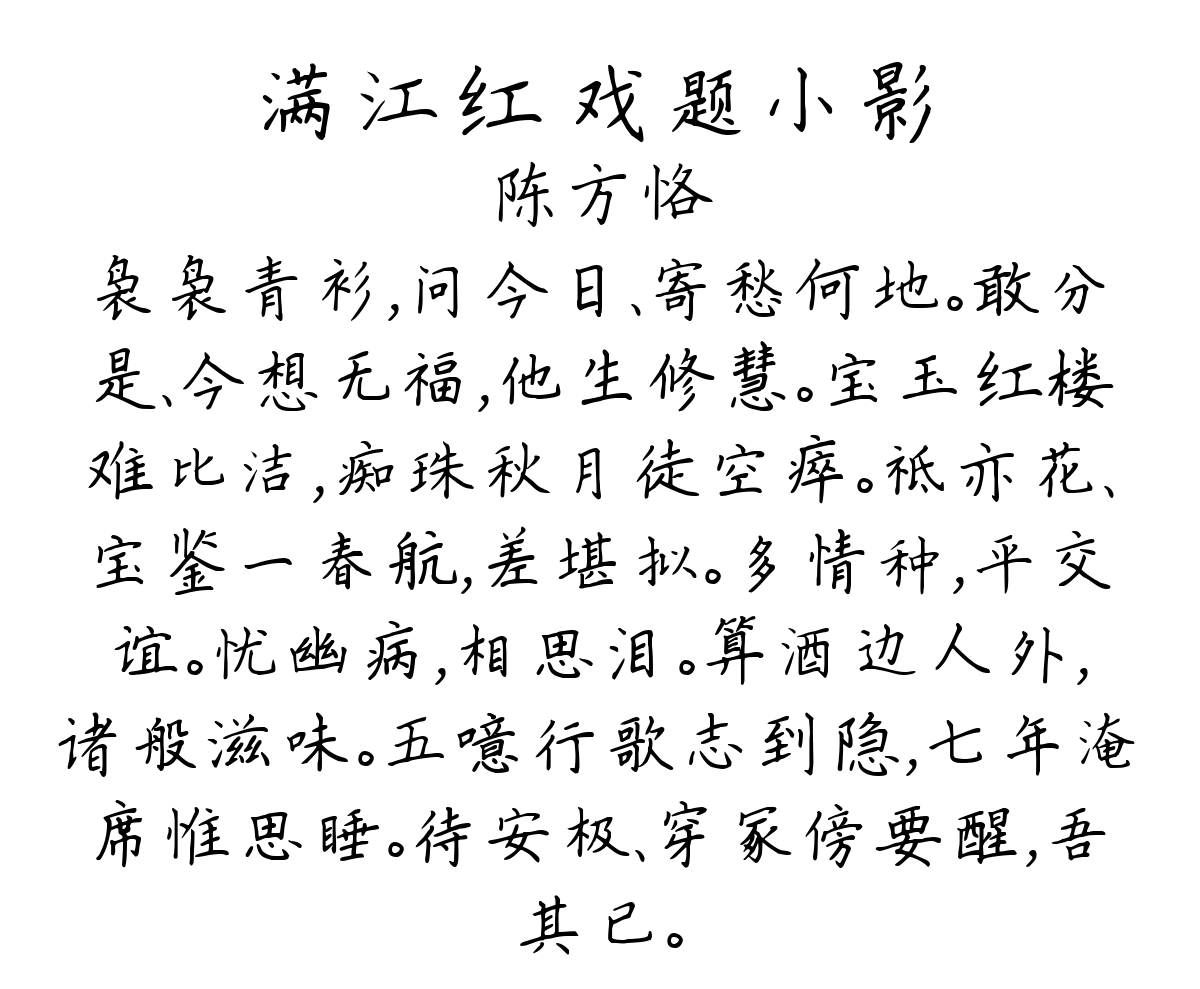 满江红戏题小影
陈方恪
袅袅青衫,问今日、寄愁何地。敢分
是、今想无福,他生修慧。宝玉红楼
难比洁,痴珠秋月徒空瘁。祗亦花、
宝鉴一春航,差堪拟。多情种,平交
谊。忧幽病,相思泪。算酒边人外,
诸般滋味。五噫行歌志到隐,七年淹
席惟思睡。待安极、穿冢傍要醒,吾
其已。